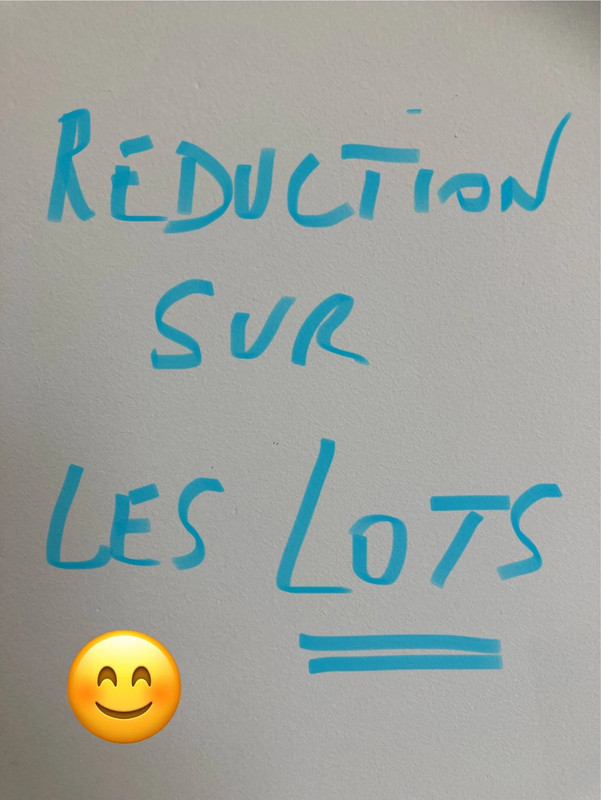 REDUCTION
SUR
LES LOTS